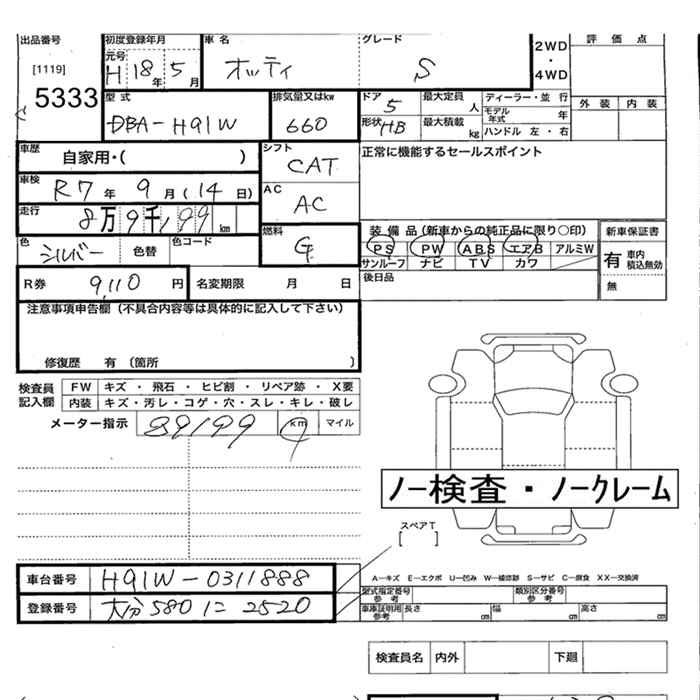 出品番号 初度登録年月 車名 グレード 評価点
[1119] 元号 H 18年 5月 オッティ S 2WD・4WD
5333 型式 排気量又はkw ドア 5 最大定員 人 ディーラー・並行 外装 内装
DBA-H91W 660 形状 HB 最大積載 kg モデル年式 年
ハンドル 左・右
車歴 自家用・( ) シフト CAT 正常に機能するセールスポイント
車検 R7年 9月(14日) AC AC
走行 8万9千199km 燃料 G 装備品(新車からの純正品に限り〇印) 新車保証書
色 シルバー 色替 色コード PS PW ABS エアB アルミW 有 車内 積込無効
サンルーフ ナビ TV カワ 無
R券 9,110円 名変期限 月 日 後日品
注意事項申告欄(不具合内容等は具体的に記入して下さい)
修復歴 有(箇所 )
検査員記入欄 FW キズ・飛石・ヒビ割・リペア跡・X要
内装 キズ・汚レ・コゲ・穴・スレ・キレ・破レ
メーター指示 89199 km マイル
ノー検査・ノークレーム
スペアT
[ ]
車台番号 H91W-0311888 A-キズ E-エクボ U-凹み W-補修跡 S-サビ C-腐食 XX-交換済
登録番号 大分580に2520 型式指定番号 参考 類別区分番号 参考
車庫証明用 参考 長さ cm 幅 cm 高さ cm
検査員名 内外 下廻